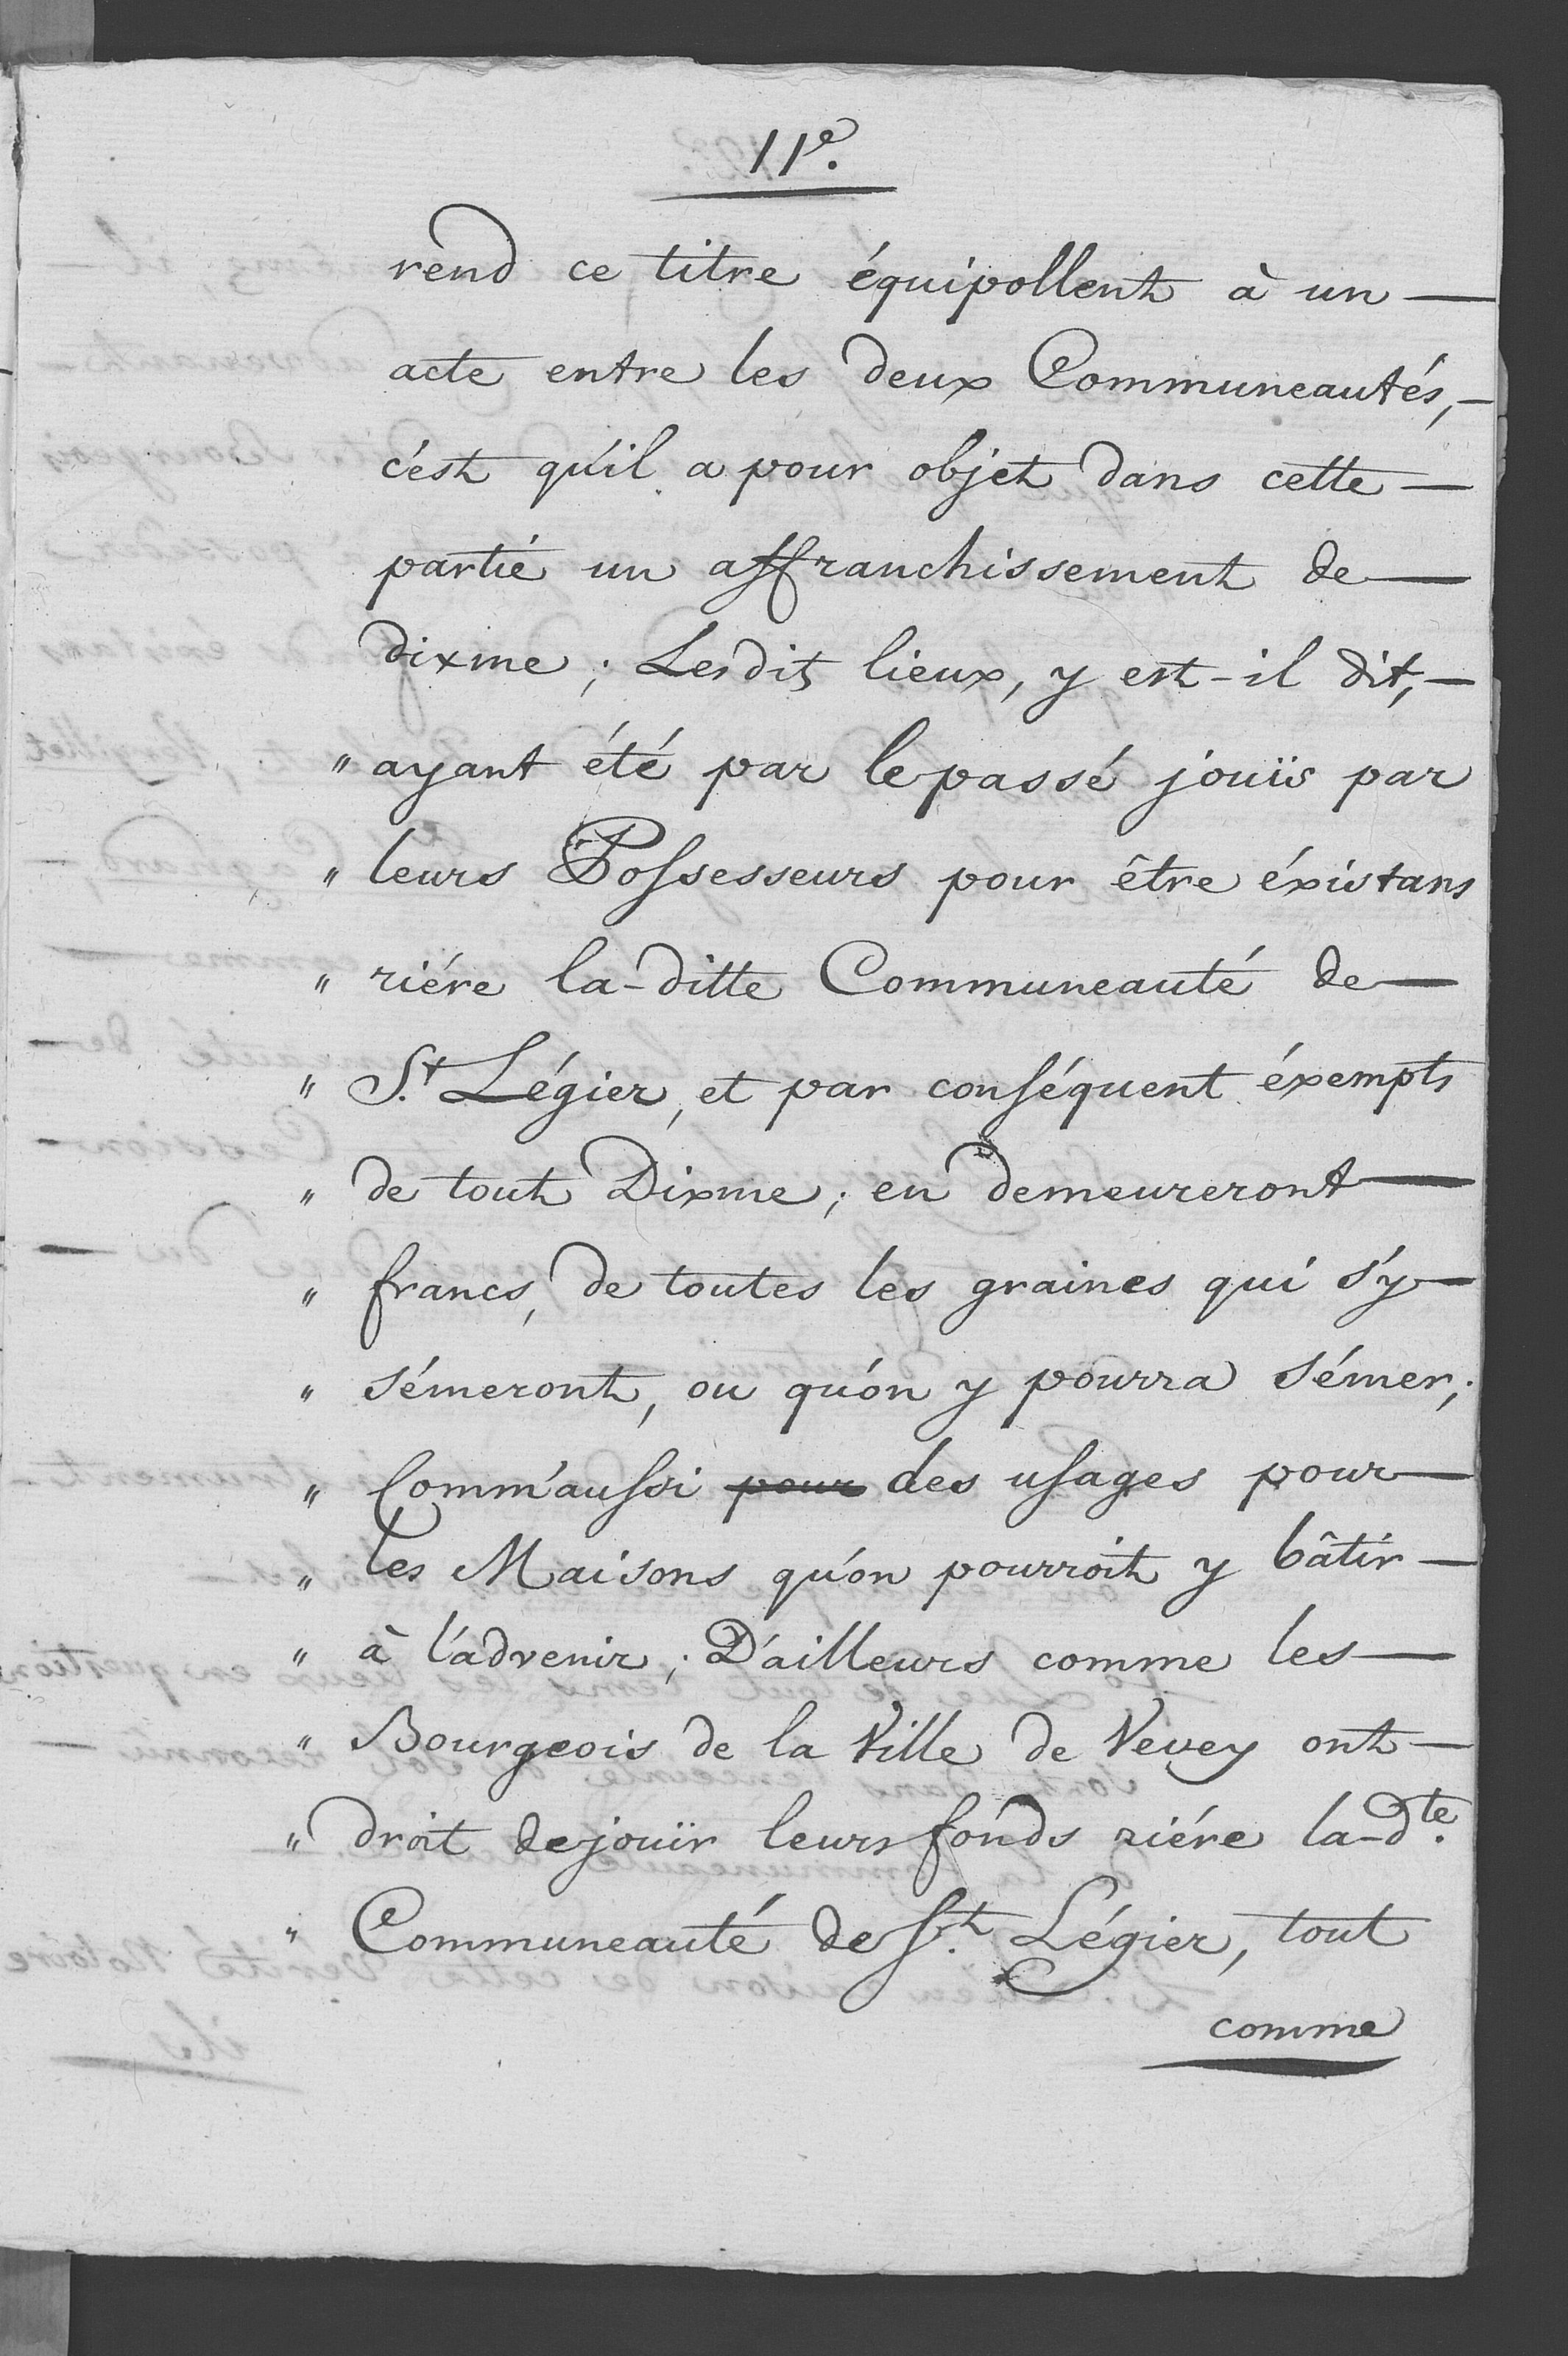 11e.
rend ce titre équipollent à un —
acte entre les deux Communeautés, —
c'est qu'il a pour objet dans cette —
partié un affranchissement de —
dixme ; Lesdits lieux, y est-il dit, —
" ayant été par le passé jouïs par
" leurs Possesseurs pour être éxistans
" riére la-ditte Communeauté de —
" St. Légier, et par conséquent éxempts
" de tout Dixme ; en demeureront —
" francs, de toutes les graines qui s'y —
" sémeront, ou qu'on y pourra sémer ;
" Comm'aussi ~~pour~~ des usages pour —
" les Maisons qu'on pourroit y bâtir —
" à l'advenir ; D'ailleurs comme les —
" Bourgeois de la Ville de Vevey ont —
" droit de jouïr leurs fonds riére la-dte.
" Communeauté de St. Légier, tout
comme